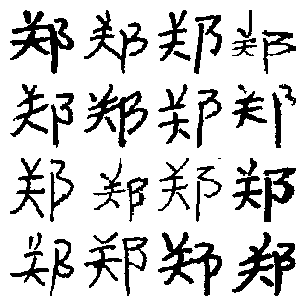 郑郑郑郑
郑郑郑郑
郑郑郑郑
郑郑郑郑